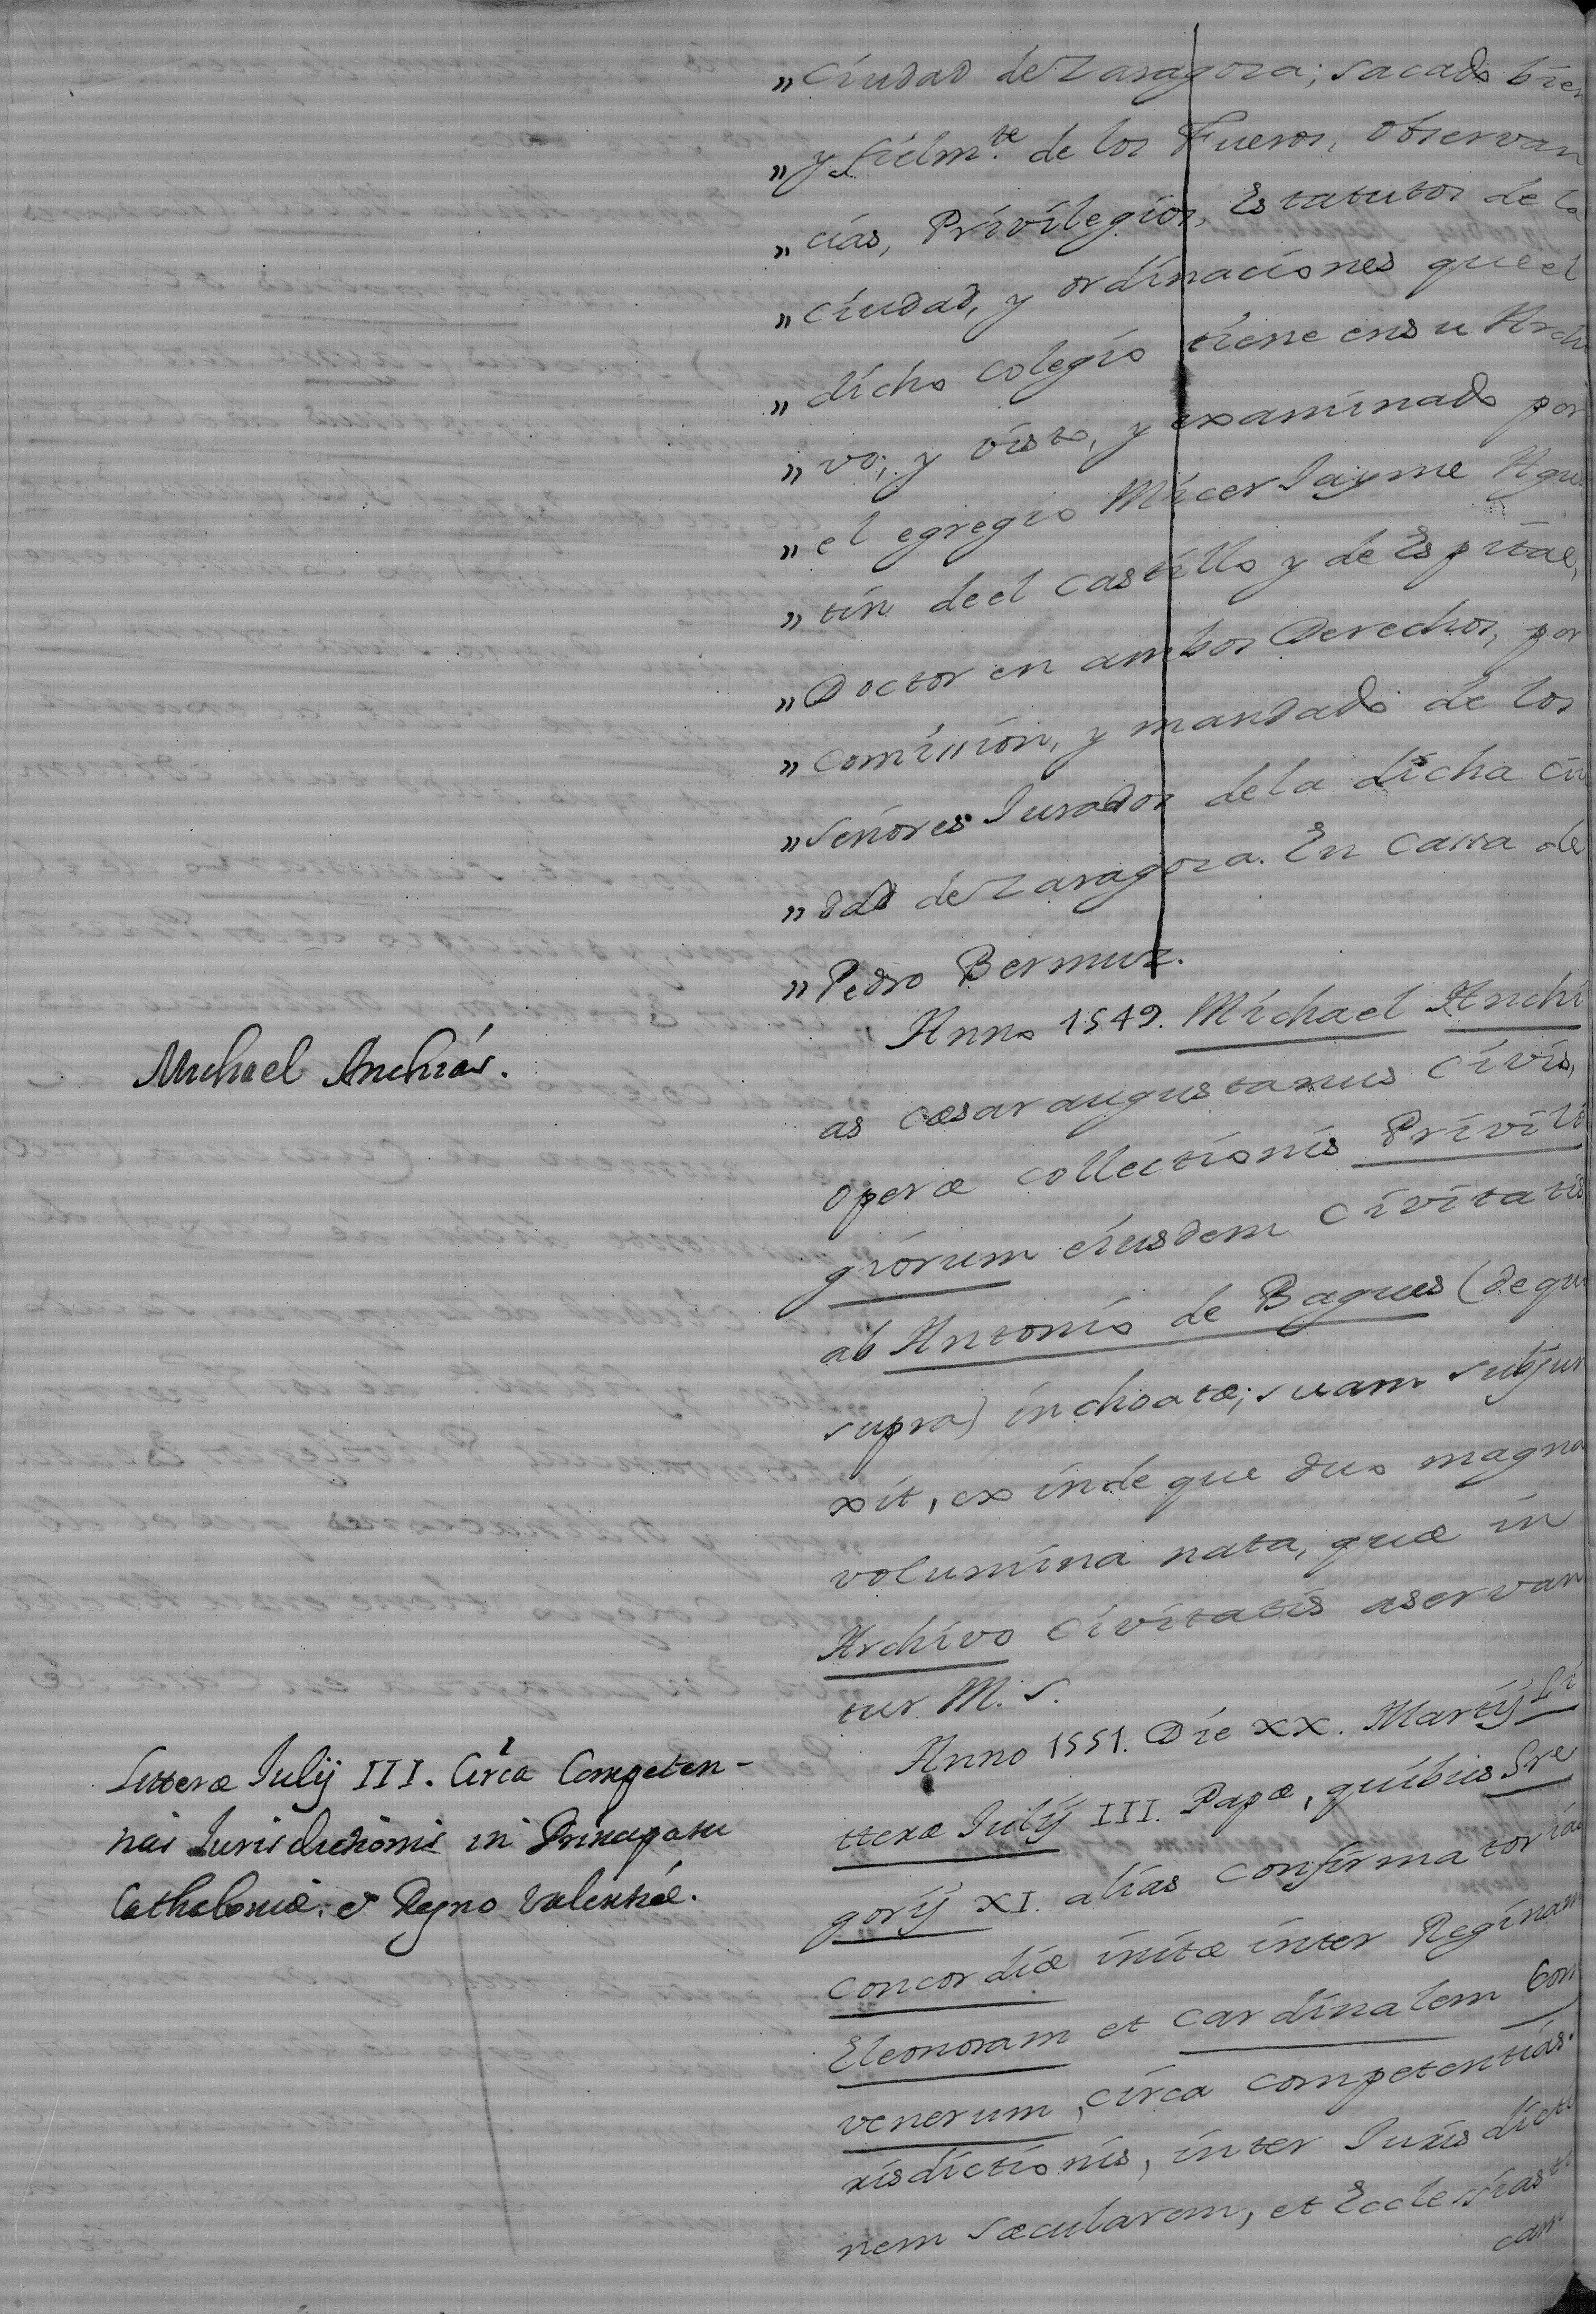 „Ciudad de Zaragoza; sacado bien
„y fielm.te de los Fueros, observan
„cias, Privilegios, Estatutos de la
„Ciudad, y ordinaciones que el
„dicho Colegio tiene en su Archi
„vo; y visto, y examinado por
„el egregio Micer Jayme Agus
„tin de el Castillo y de Espital,
„Doctor en ambos Derechos, por
„comission, y mandado de los
„señores Jurados de la dicha Ciu
„dad de Zaragoza. En Cassa de
„Pedro Bermuz.
Michael Anchias.
Anno 1549. Michael Anchi
as Cæsaraugustanus Civis,
operæ collectionis Privile
giorum eiusdem Civitatis
ab Antonio de Bagues (de quo
supra) inchoatæ; suam subjun
xit, exindeque duo magna
volumina nata, quæ in
Archivo Civitatis aservan
tur M. S.
Litteræ Iulij III. Circa Competen-
tias Iurisdictionis in Principatu
Cathaloniæ, et Regno Valentiæ.
Anno 1551. Die XX. Martij Li
tteræ Iulij III. Papæ, quibus Gre
gorij XI. alias confirmatorias
Concordiæ initæ inter Reginam
Eleonoram et Cardinalem Con
venerum, circa competentias
risdictionis, inter Iurisdictio
nem sæcularem, et Ecclesiasti
cam